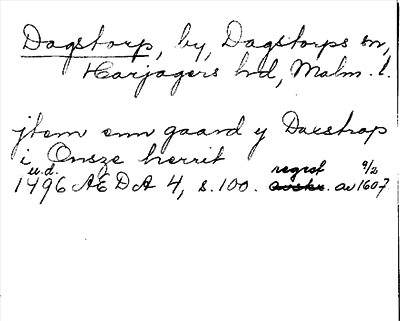 Dagstorp, by, Dagstorps sn,
Harjagers hd, Malm. l.
jtem enn gaard y Daxstrap
i Onsze herrit
u.d. regest 9/2
1496 ÆDA 4, s. 100. avskr. av 1607